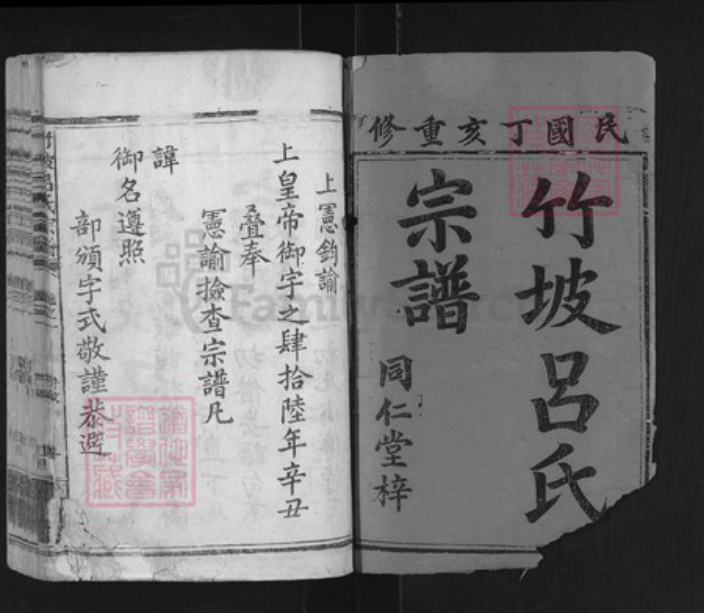 民國丁亥重修
竹坡呂氏
宗譜
同仁堂梓
上憲鈞諭
上皇帝御宇之肆拾陸年辛丑
叠奉
憲諭撿查宗譜凡
諱
御名遵照
部頒字式敬謹恭避